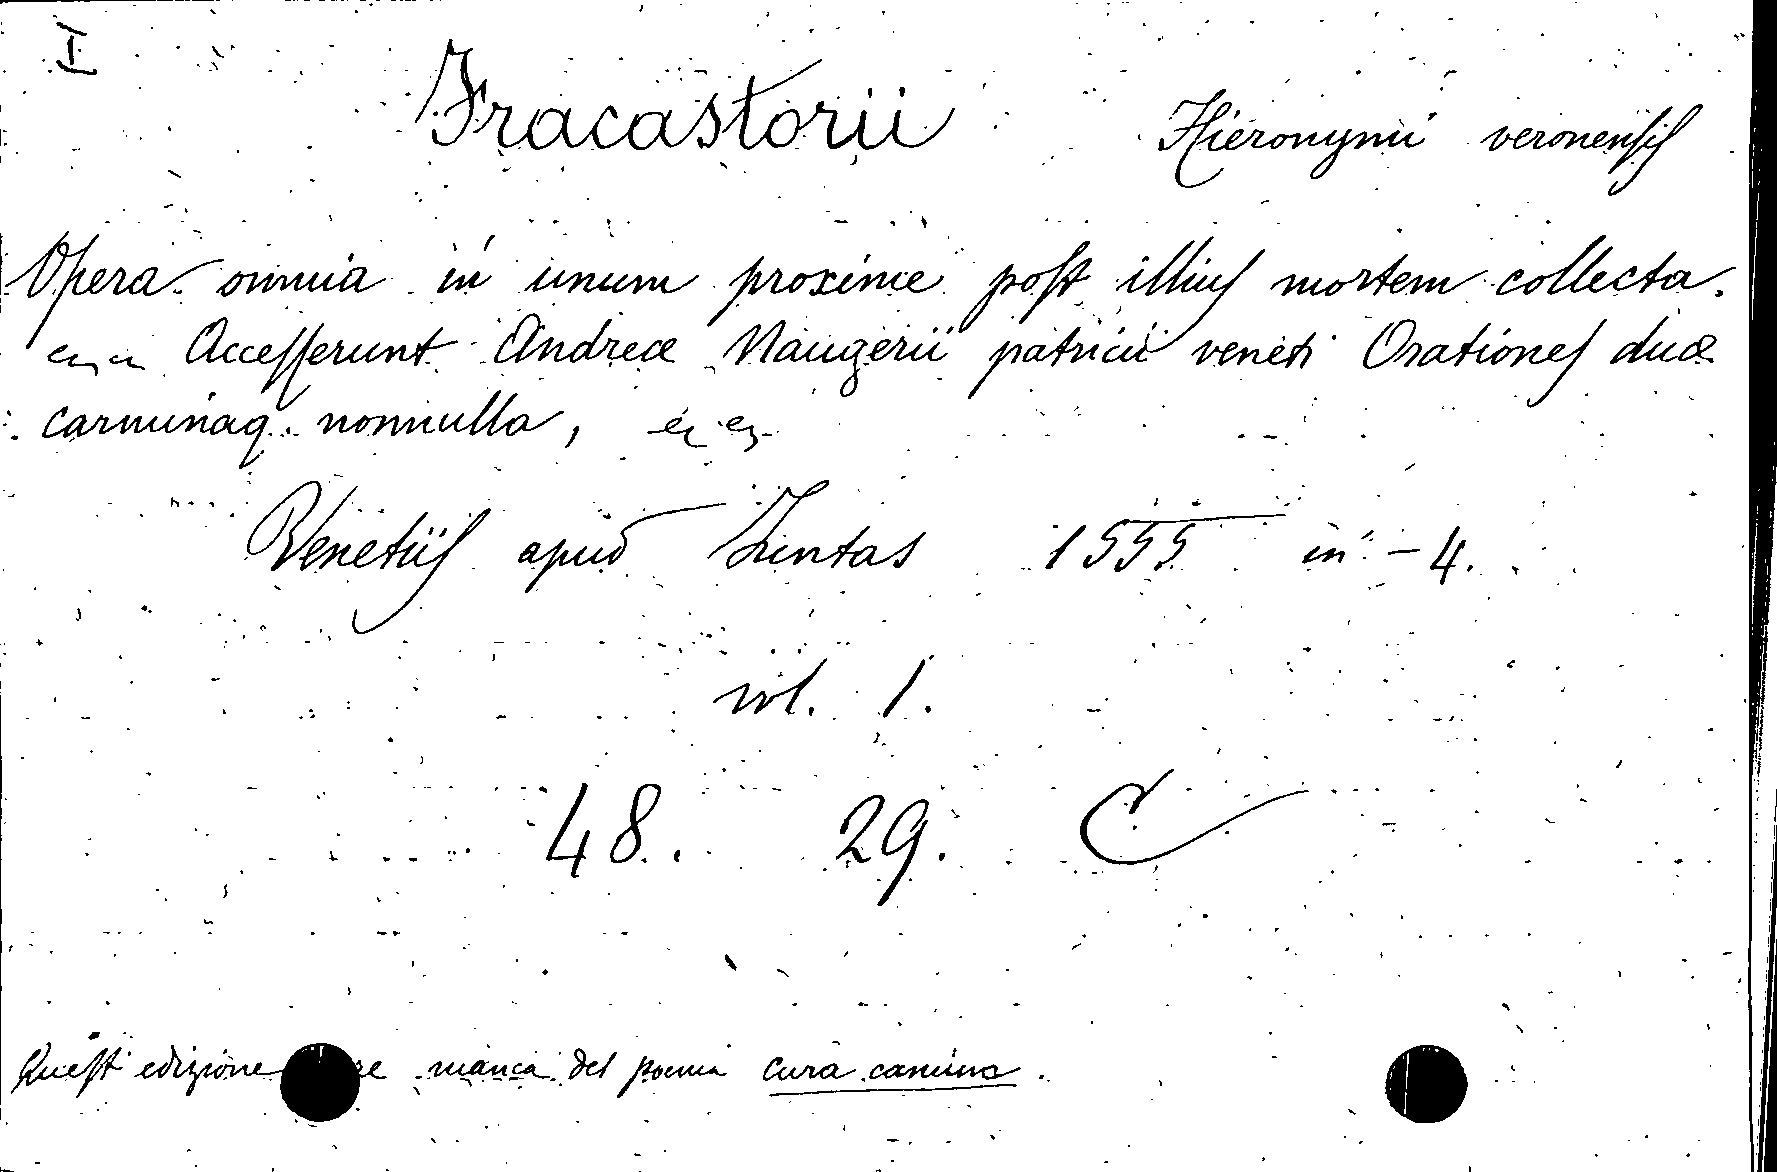 I
Fracastorii Hieronymi veronensis
Opera omnia in unum proxime post illius mortem collecta.
Accesserunt Andreæ Naugerii patricii veneti Orationes duæ
carminaq. nonnulla,
Venetiis apud Iuntas 1555 in-4.
vol. 1.
48. 29. C
Quest edizione re manca del poema Cura canina.